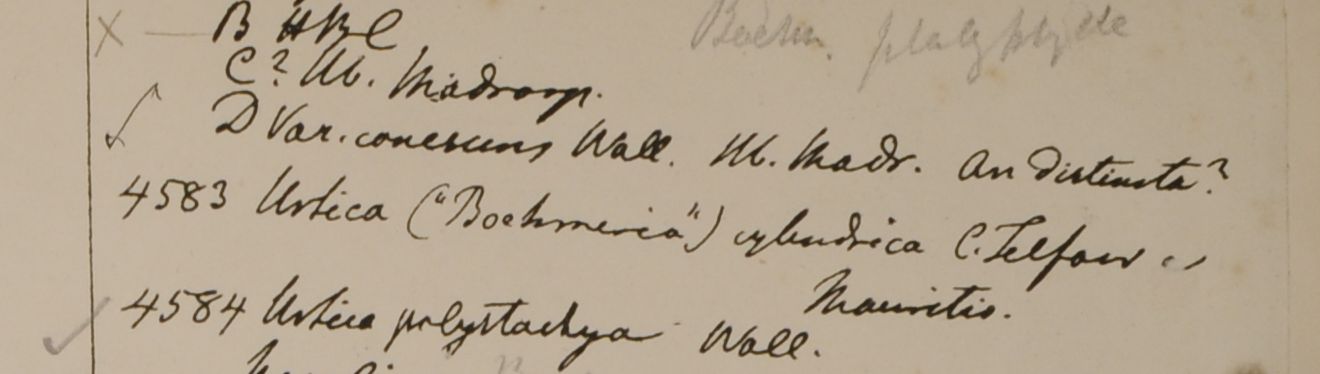 B HBC
Boehm. platyphylla
C? Hb. Madrasp.
D Var. canescens Wall. Hb. Madr. An distincta?
4583 Urtica ("Boehmeria") cylindrica C. Telfair
Mauritio.
4584 Urtica polystachya Wall.